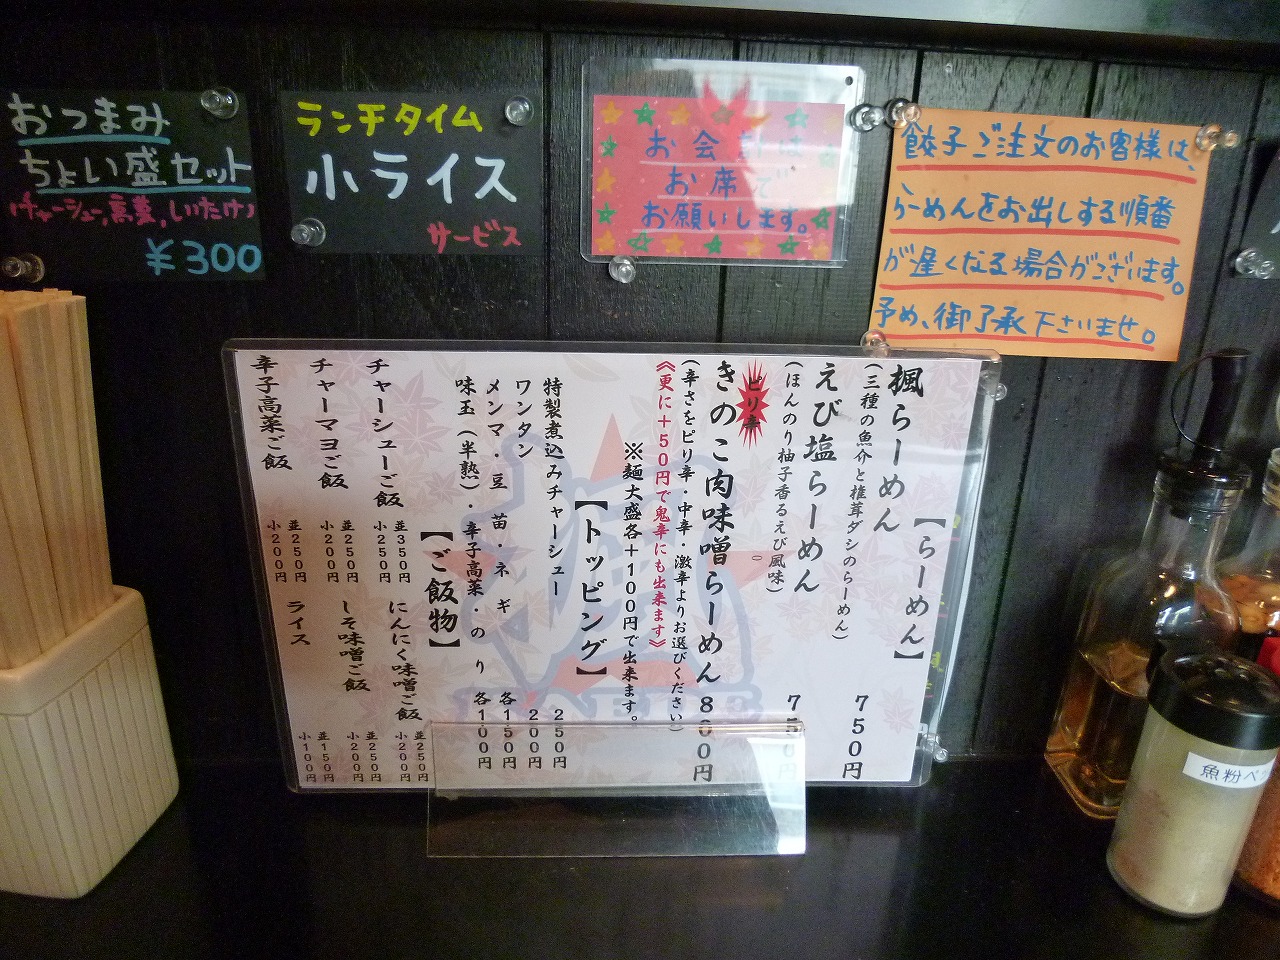 おつまみ
ちょい盛セット
(チャーシュー,高菜,しいたけ)
¥300
ランチタイム
小ライス
サービス
お会計は
お席で
お願いします。
餃子ご注文のお客様は、
らーめんをお出しする順番
が遅くなる場合がございます。
予め、御了承下さいませ。
【らーめん】
楓らーめん 750円
(三種の魚介と椎茸ダシのらーめん)
えび塩らーめん 750円
(ほんのり柚子香るえび風味)
ピリ辛
きのこ肉味噌らーめん 800円
(辛さをピリ辛・中辛・激辛よりお選びください)
《更に+50円で鬼辛にも出来ます》
※麺大盛各+100円で出来ます。
【トッピング】
特製煮込みチャーシュー 250円
ワンタン 200円
メンマ・豆苗・ネギ 各150円
味玉(半熟)・辛子高菜・のり 各100円
【ご飯物】
チャーシューご飯 並350円 小250円
にんにく味噌ご飯 並250円 小200円
チャーマヨご飯 並250円 小200円
しそ味噌ご飯 並250円 小200円
辛子高菜ご飯 並250円 小200円
ライス 並150円 小100円
魚粉ペ